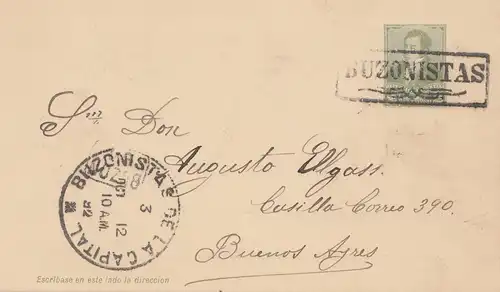 BUZONISTAS
Sr. Don
Augusto Elgass.
Casilla Correo 390.
Buenos Ayres
BUZONISTAS DE LA CAPITAL
3
12
10 A.M.
92
Escribase en este lado la direccion